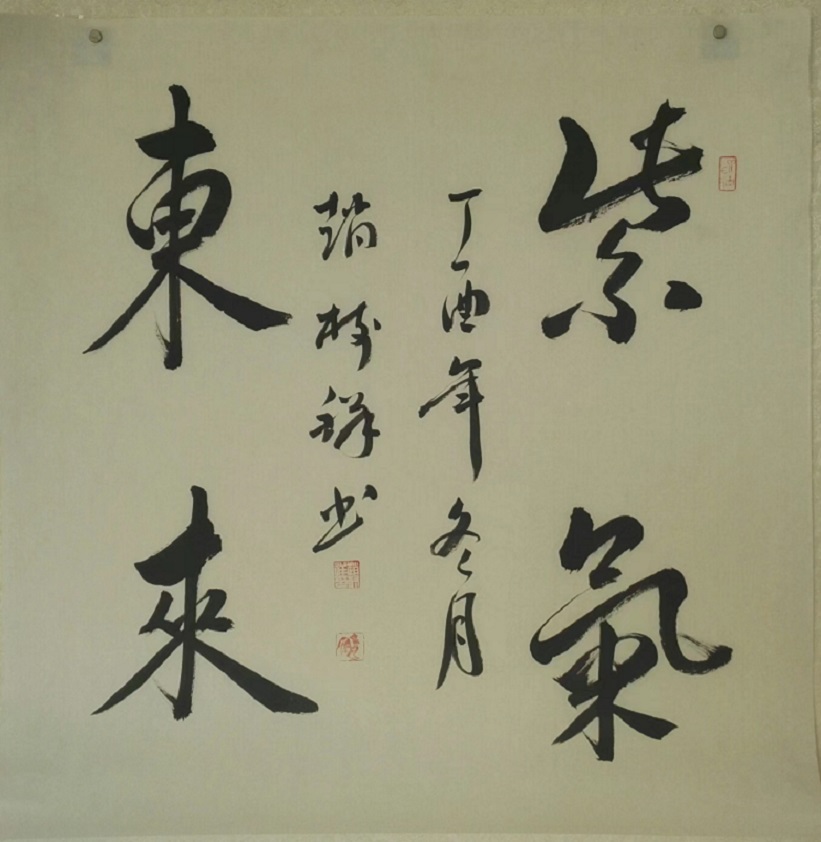 紫氣
丁酉年冬月
趙樹祥书
東來